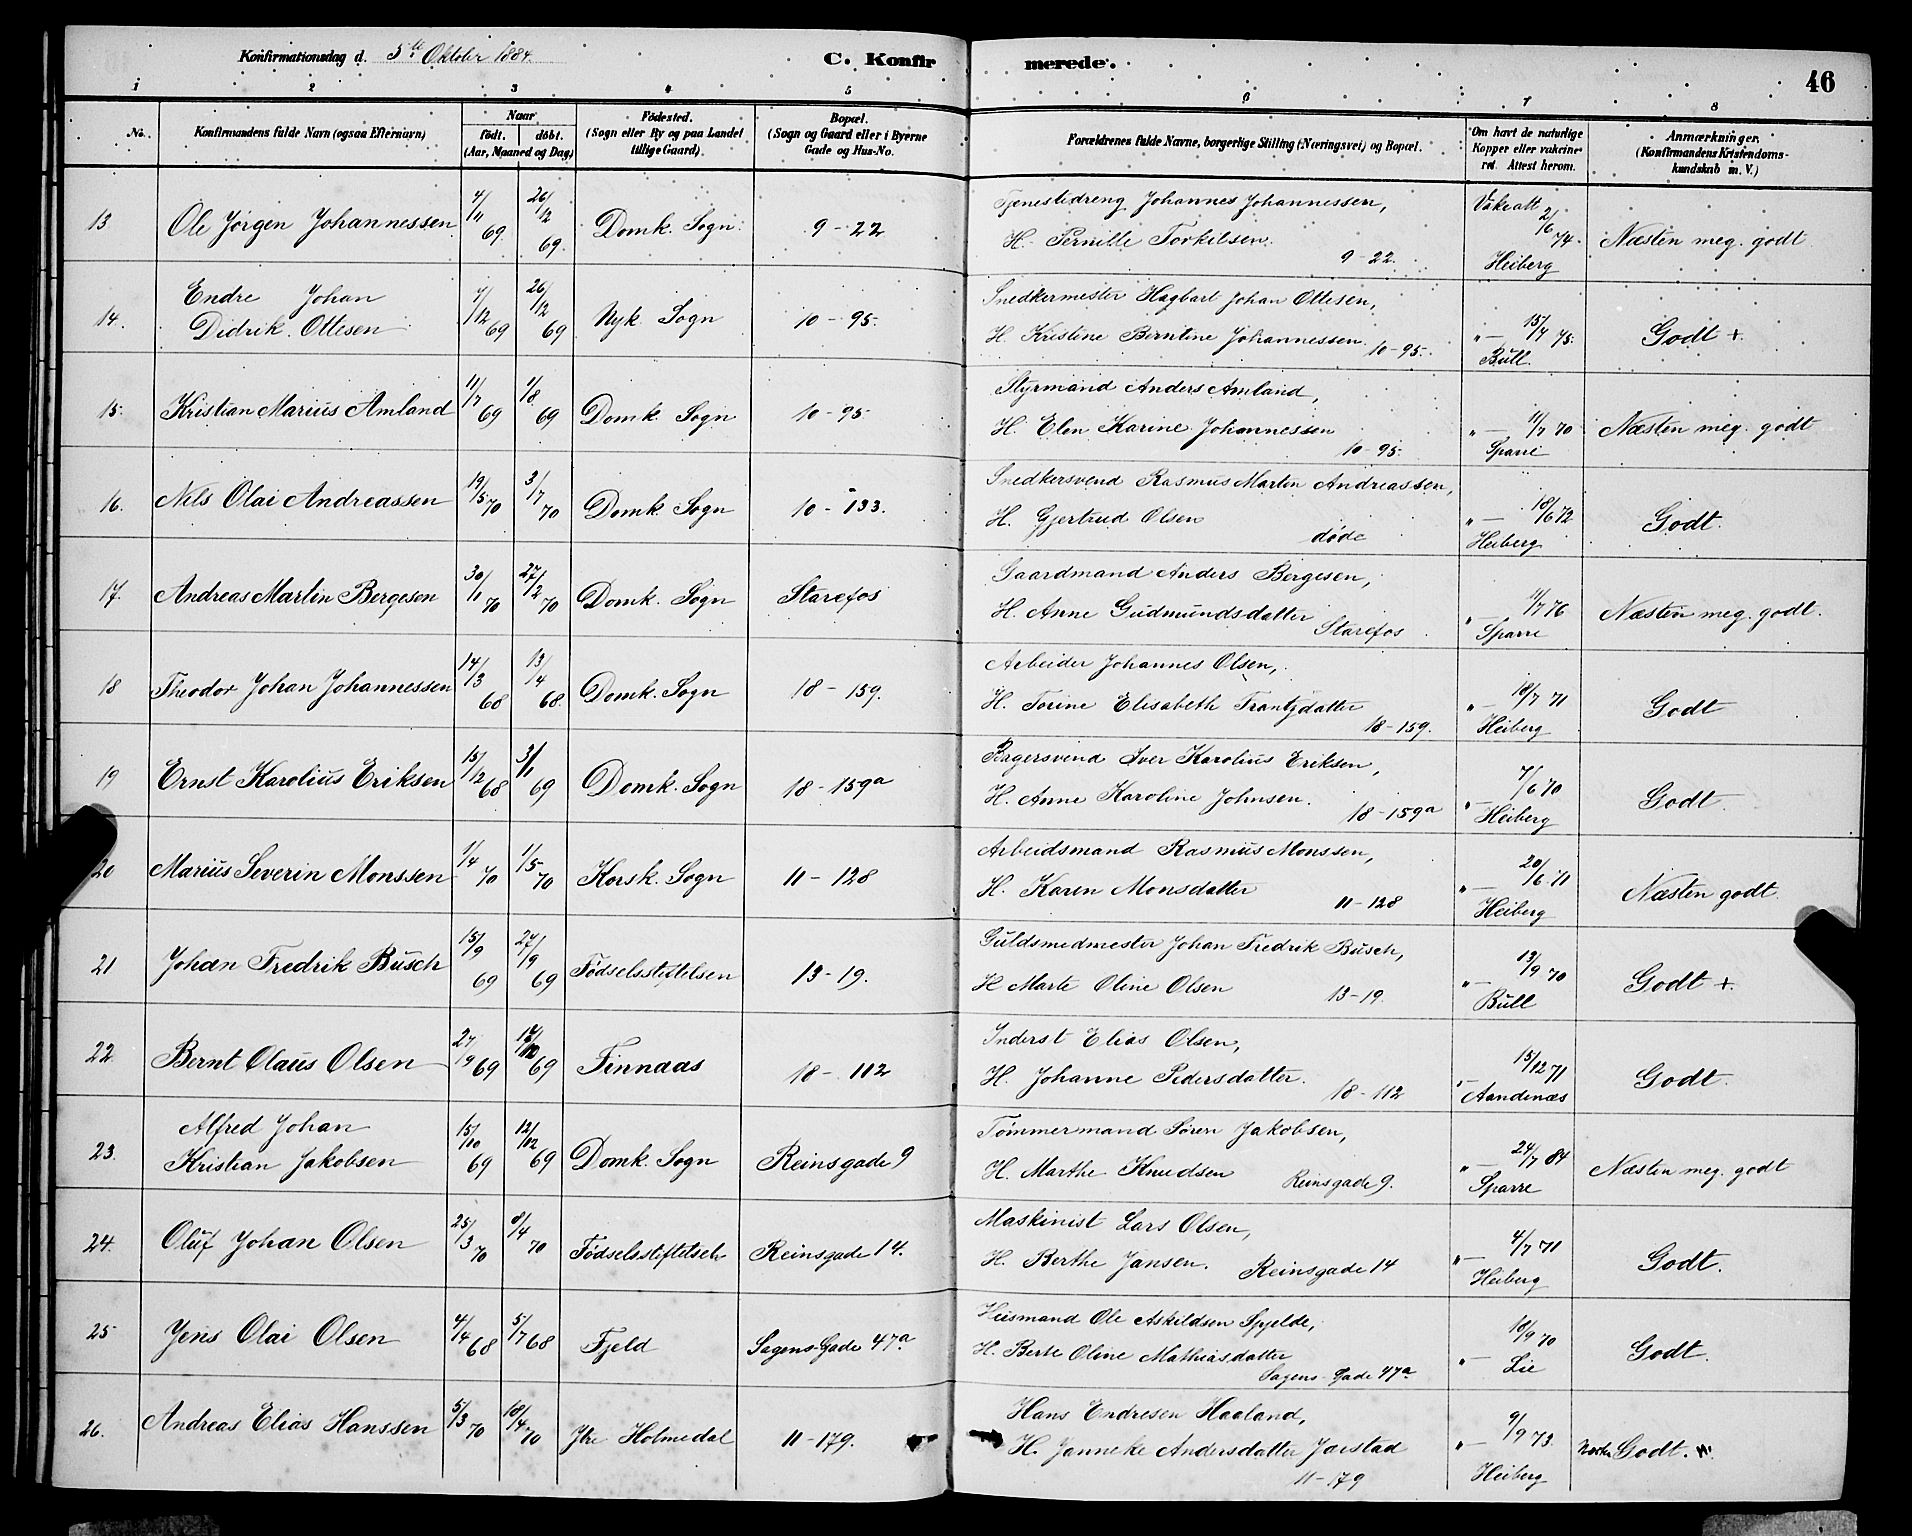 Konfirmationsdag d. 5te Oktober 1884.
C. Konfirmerede.
46
1 2 3 4 5 6 7 8
No.
Konfirmandens fulde Navn (ogsaa Efternavn)
Naar
födt. döbt.
(Aar, Maaned og Dag)
Födested.
(Sogn eller By og paa Landet
tillige Gaard).
Bopæl.
(Sogn og Gaard eller i Byerne
Gade og Hus-No.
Forældrenes fulde Navne, borgerlige Stilling (Næringsvei) og Bopæl.
Om havt de naturlige
Kopper eller vakcine-
ret. Attest herom.
Anmærkninger.
(Konfirmandens Kristendoms-
kundskab m. V.)
13 Ole Jørgen Johannessen 4/11 69 26/12 69. Domk. Sogn. 9-22
Tjenestedreng Johannes Johannessen,
H. Pernille Torkilsen. 9-22.
Vakcatt 2/6 74. Heiberg
Næsten meg. godt
14. Endre Johan
Didrik Ottesen 4/12 69 26/12 69 Nyk. Sogn 10-95.
Snedkermester Hagbart Johan Ottesen,
H. Kristine Berntine Johannessen. 10-95.
" — 15/7 75. Bull
Godt +
15. Kristian Marius Amland 11/7 69 1/8 69 Domk. Sogn 10-95
Styrmand Anders Amland,
H. Elen Karine Johannessen 10-95.
" — 11/7 70 Sparre
Næsten meg. godt
16. Nils Olai Andreassen 19/5 70 3/7 70 Domk. Sogn 10-133.
Snedkersvend Rasmus Martin Andreassen,
H. Gjertrud Olsen døde
" — 18/6 72 Heiberg
Godt.
17. Andreas Martin Bergesen 30/11 70 27/12 70 Domk. Sogn Starefos
Gaardmand Anders Bergesen,
H. Anne Gudmundsdatter Starefos
" — 11/7 76 Sparre
Næsten meg. godt.
18 Theodor Johan Johannessen 14/3 68 13/4 68. Domk. Sogn 18-159.
Arbeider Johannes Olsen,
H. Torine Elisabeth Frantzdatter 18-159.
" — 18/7 71 Heiberg
Godt
19 Ernst Karolius Eriksen 15/12 68 3/1 69 Domk. Sogn 18-159a
Bagersvend Iver Karolius Eriksen,
H. Anne Karoline Johnsen. 18-159a
" — 7/6 70 Heiberg
Godt.
20 Marius Severin Monssen 1/4 70 1/5 70 Korsk. Sogn 11-128
Arbeidsmand Rasmus Monssen,
H. Karen Monsdatter 11-128
" — 20/6 71 Heiberg
Næsten godt.
21 Johan Fredrik Busch 15/9 69 24/9 69 Fødselsstiftelsen 13-19.
Guldsmedmester Johan Fredrik Busch,
H Marte Oline Olsen 13-19.
" — 13/9 70 Bull
Godt +.
22 Bernt Olaus Olsen 27/9 69 69 Finnaas 18-112
Inderst Elias Olsen,
H. Johanne Pedersdatter. 18-112
" 15/12 71 Aandenæs
Godt.
23. Alfred Johan
Kristian Jakobsen 15/10 69 12/12 69 Domk. Sogn Reinsgade 9
Tømmermand Søren Jakobsen,
H. Marthe Knudsen Reinsgade 9.
" — 24/7 84 Sparre
Næsten meg. godt
24. Oluf Johan Olsen 25/3 70 8/4 70 Fødselsstiftelsen Reinsgade 14.
Maskinist Lars Olsen,
H. Berthe Jansen. Reinsgade 14
" — 4/7 71 Heiberg
Godt.
25 Jens Olai Olsen 4/4 68 5/7 68 Fjeld Sagens-Gade 47a
Husmand Ole Askildsen Spjelde,
H. Berte Oline Mathiasdatter
Sagens-Gade 47a
" — 10/9 70 Lie
Godt.
26. Andreas Elias Hanssen 5/3 70 18/4 70 Ytre Holmedal 11-179.
Hans Endresen Haaland,
H. Janneke Andersdatter Jarstad
11-179
" — 9/9 73. Heiberg
Næsten Godt.